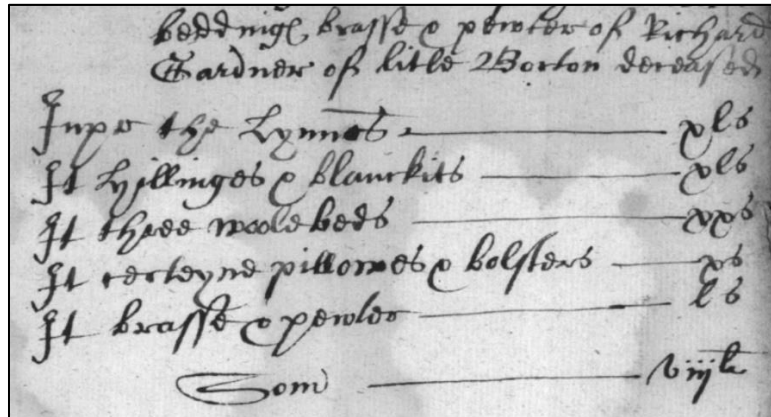 beddnigℓ brasse & pewter of Richard
Gardner of litle Borton deceased
Inpo the Lynnēs xls
It hillinges & blanckits xls
It three woole beds xxs
It certeyne pillowes & bolsters xs
It brasse & pewter ls
Som viijli